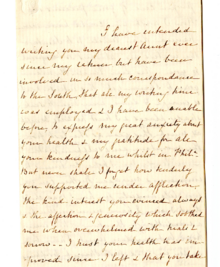 I have intended
writing you my dearest Aunt ever
since my return but have been
involved in so much correspondence
to the South, that all my writing time
was employed & I have been unable
before, to express my great anxiety about
your health & my gratitude for all
your kindness to me whilst in Phil.
But never shall I forget how kindly
you supported me under affliction,
the kind interest you evinced always
& the affection & generosity which soothed
me when overwhelmed with trials &
sorrow. I trust your health has im-
proved since I left & that you take